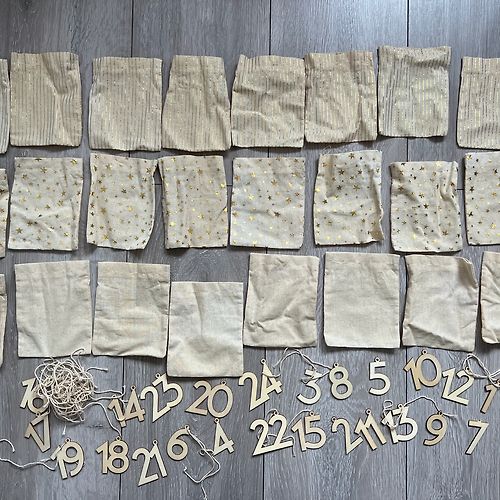 16 14 23 20 24 3 8 5 10 12 1
17 19 18 21 6 4 22 15 2 11 13 9 7